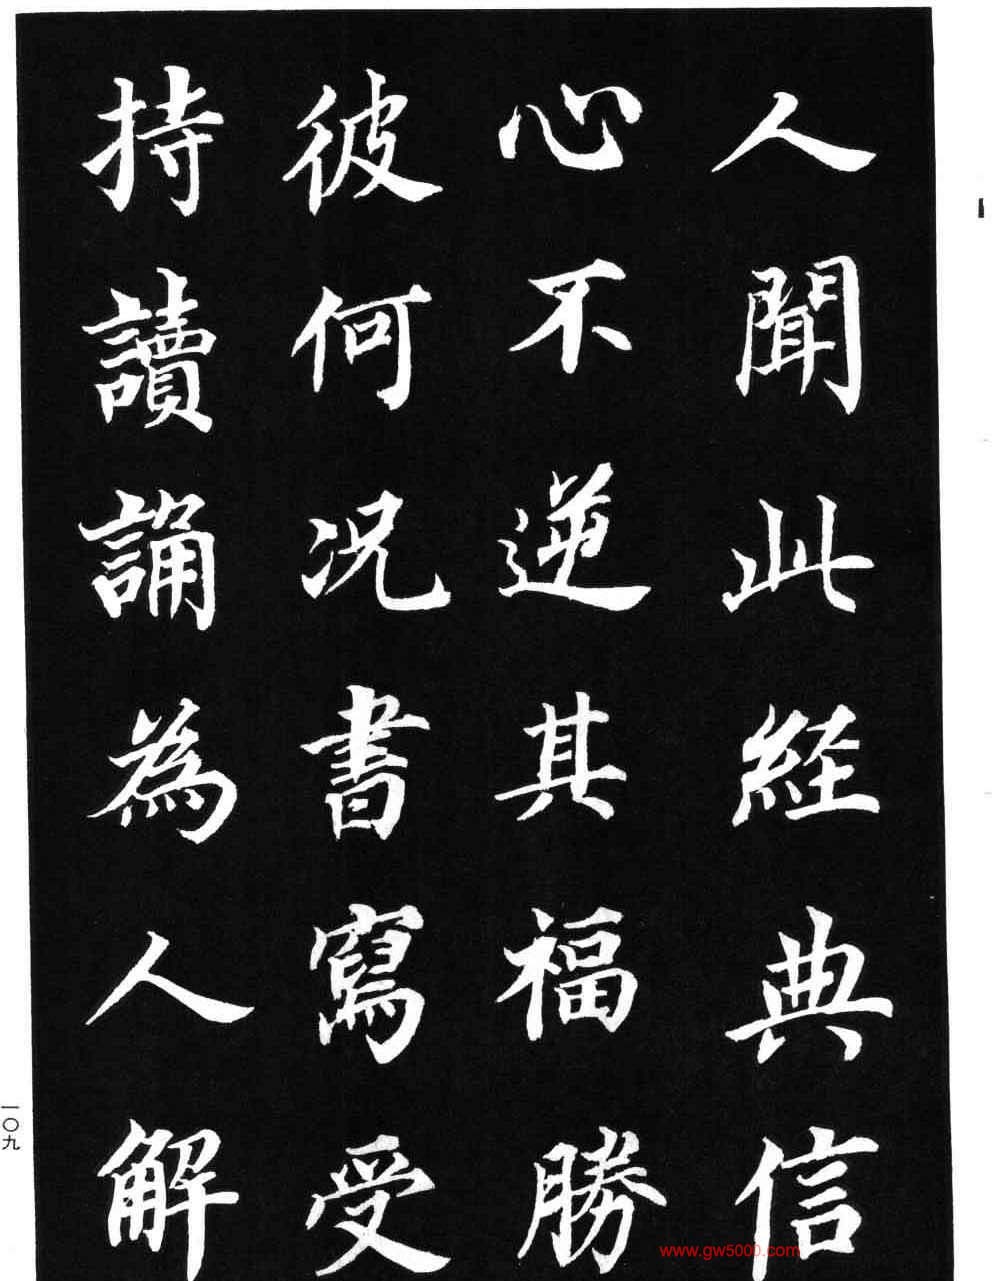 人聞此経典信
心不逆其福勝
彼何况書寫受
持讀誦為人解
一〇九
www.gw5000.com